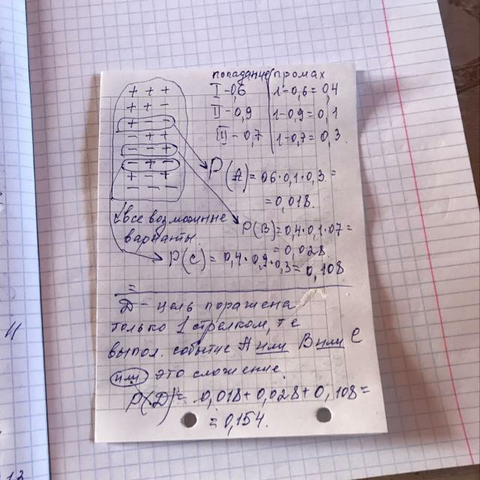 попадание промах
+ + +
I - 0,6 1-0,6 = 0,4
+ + -
II - 0,9 1-0,9 = 0,1
+ - -
III - 0,7 1-0,7 = 0,3
- + +
- - +
- + -
P(A) = 0,6·0,1·0,3 =
+ - +
- - -
= 0,018.
все возможные
варианты.
P(B) = 0,4·0,1·0,7 =
= 0,028
P(C) = 0,4·0,9·0,3 = 0,108
=
D - цель поражена
только 1 стрелком, т е
выпол. событие A или B или C
или это сложение.
P(D) = 0,018 + 0,028 + 0,108 =
= 0,154.
4
12